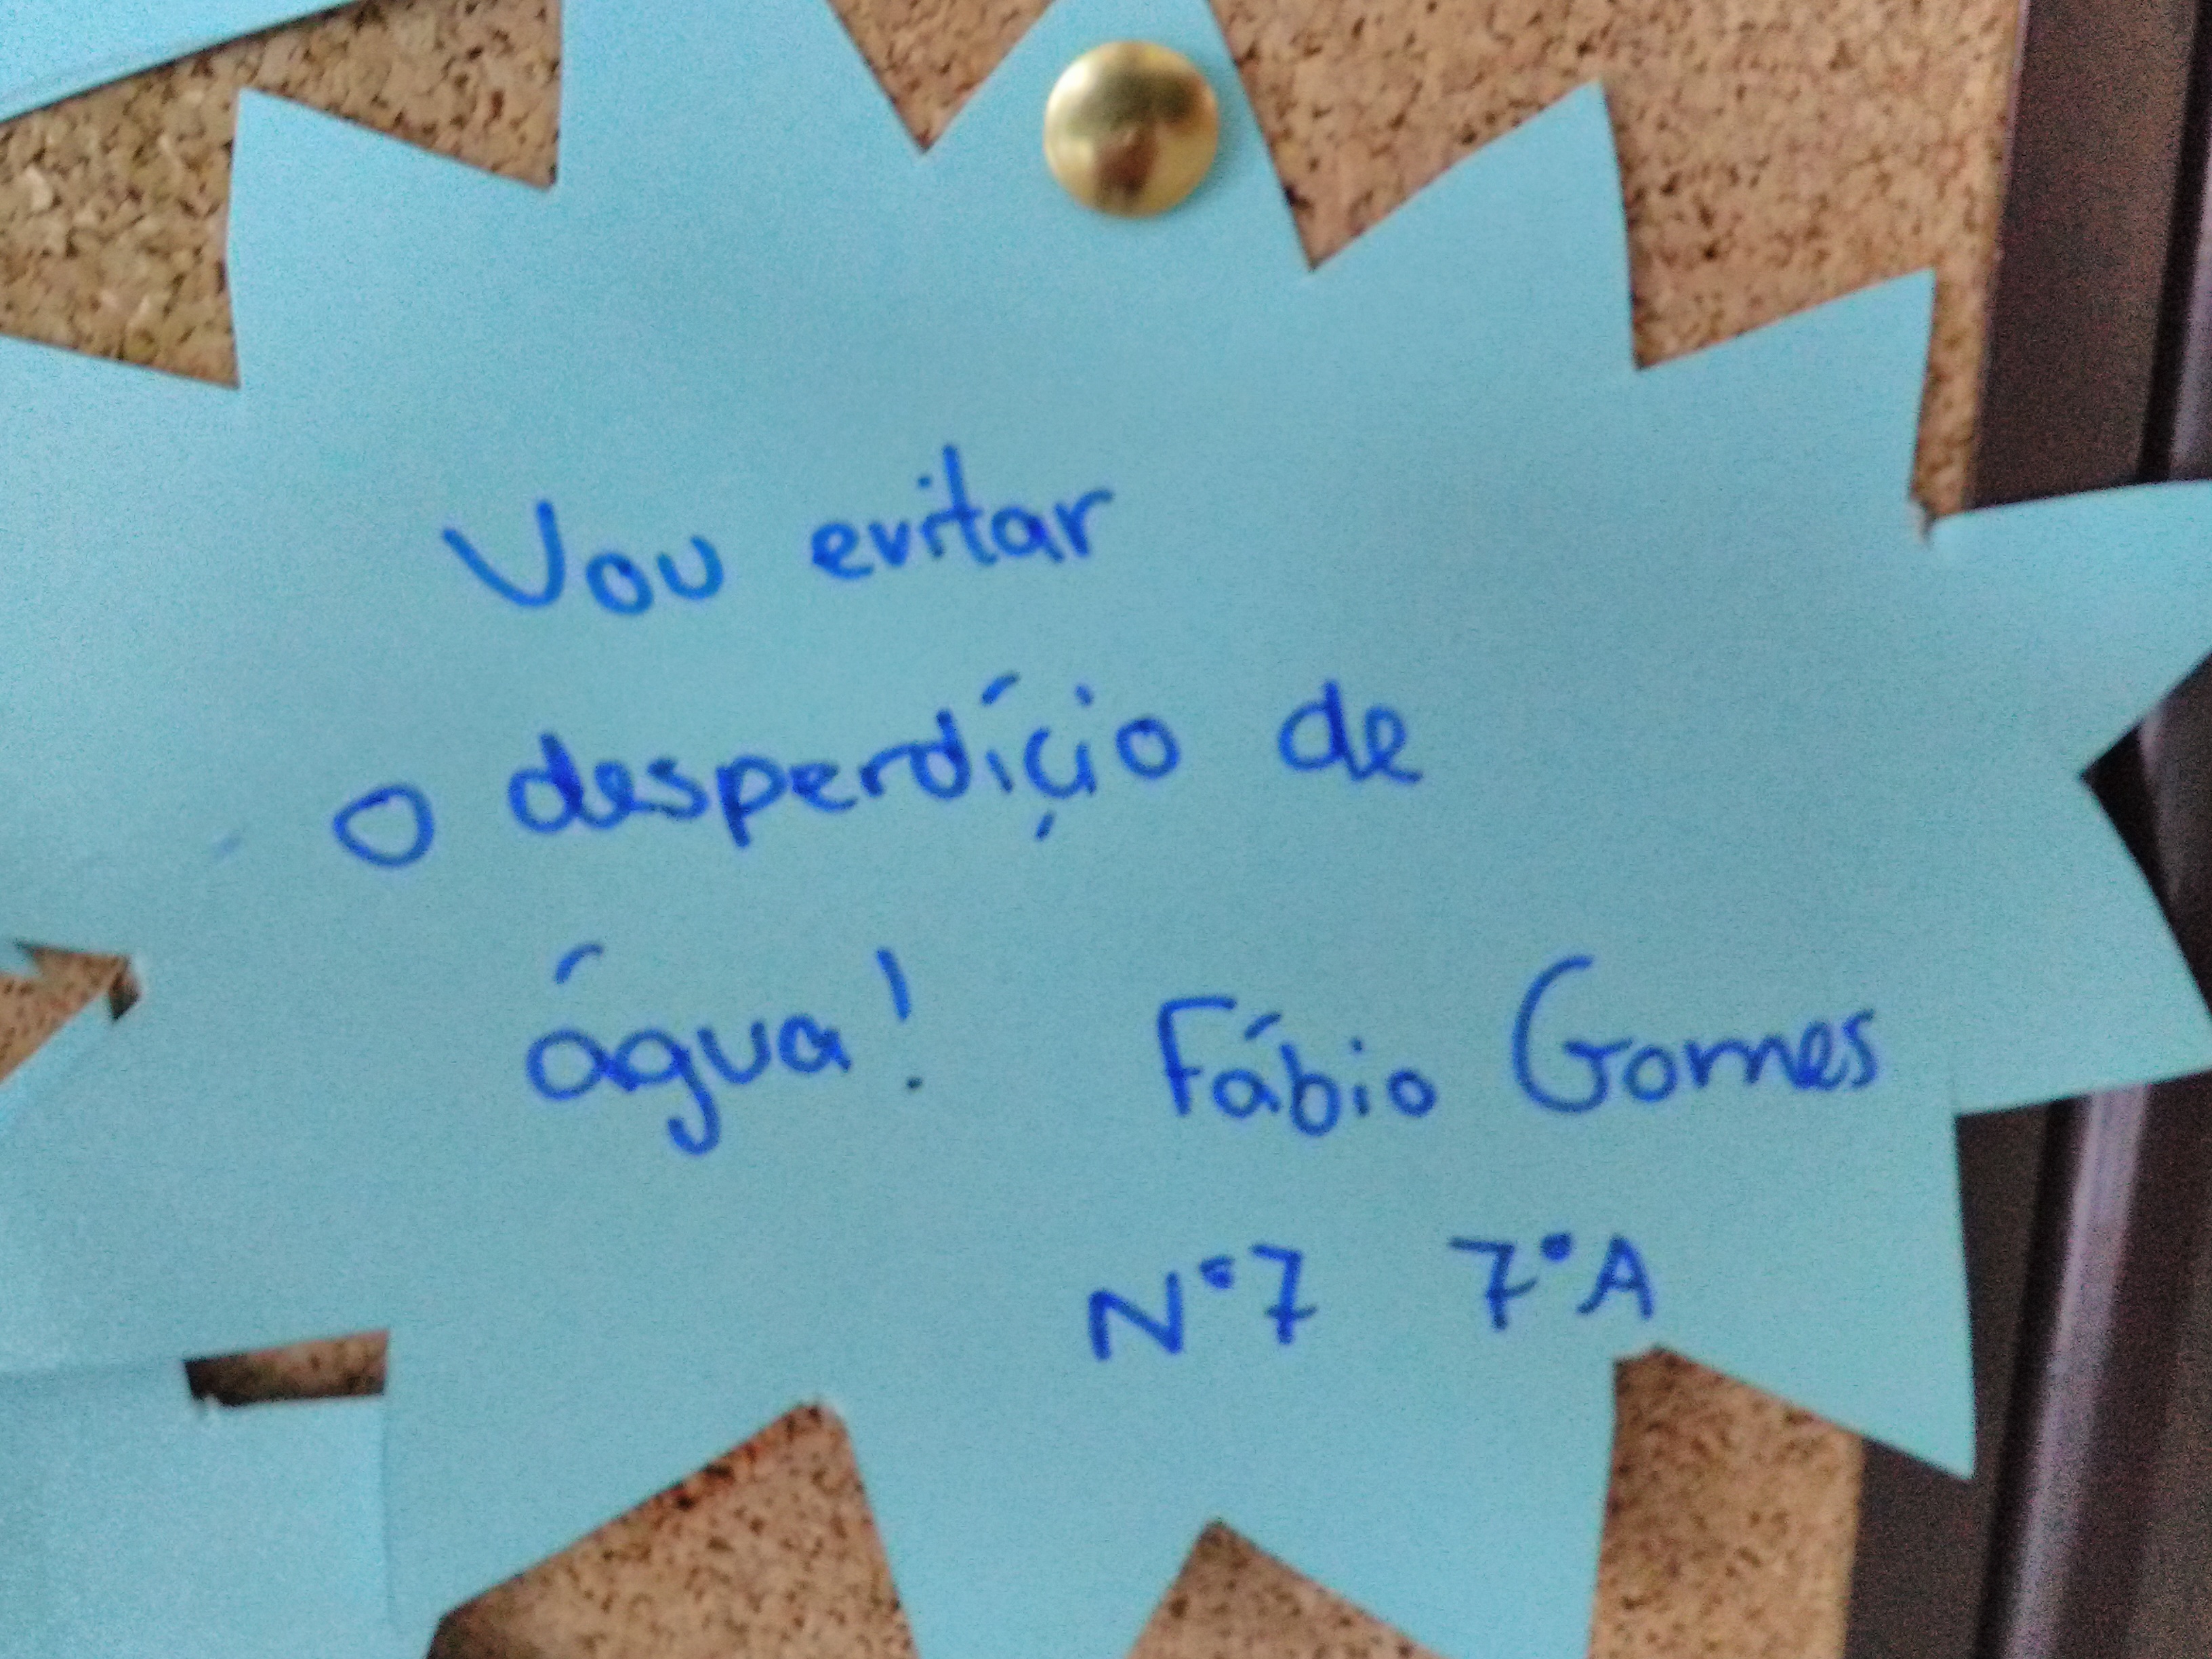 Vou evitar
o desperdíçio de
água! Fábio Gomes
Nº7 7ºA